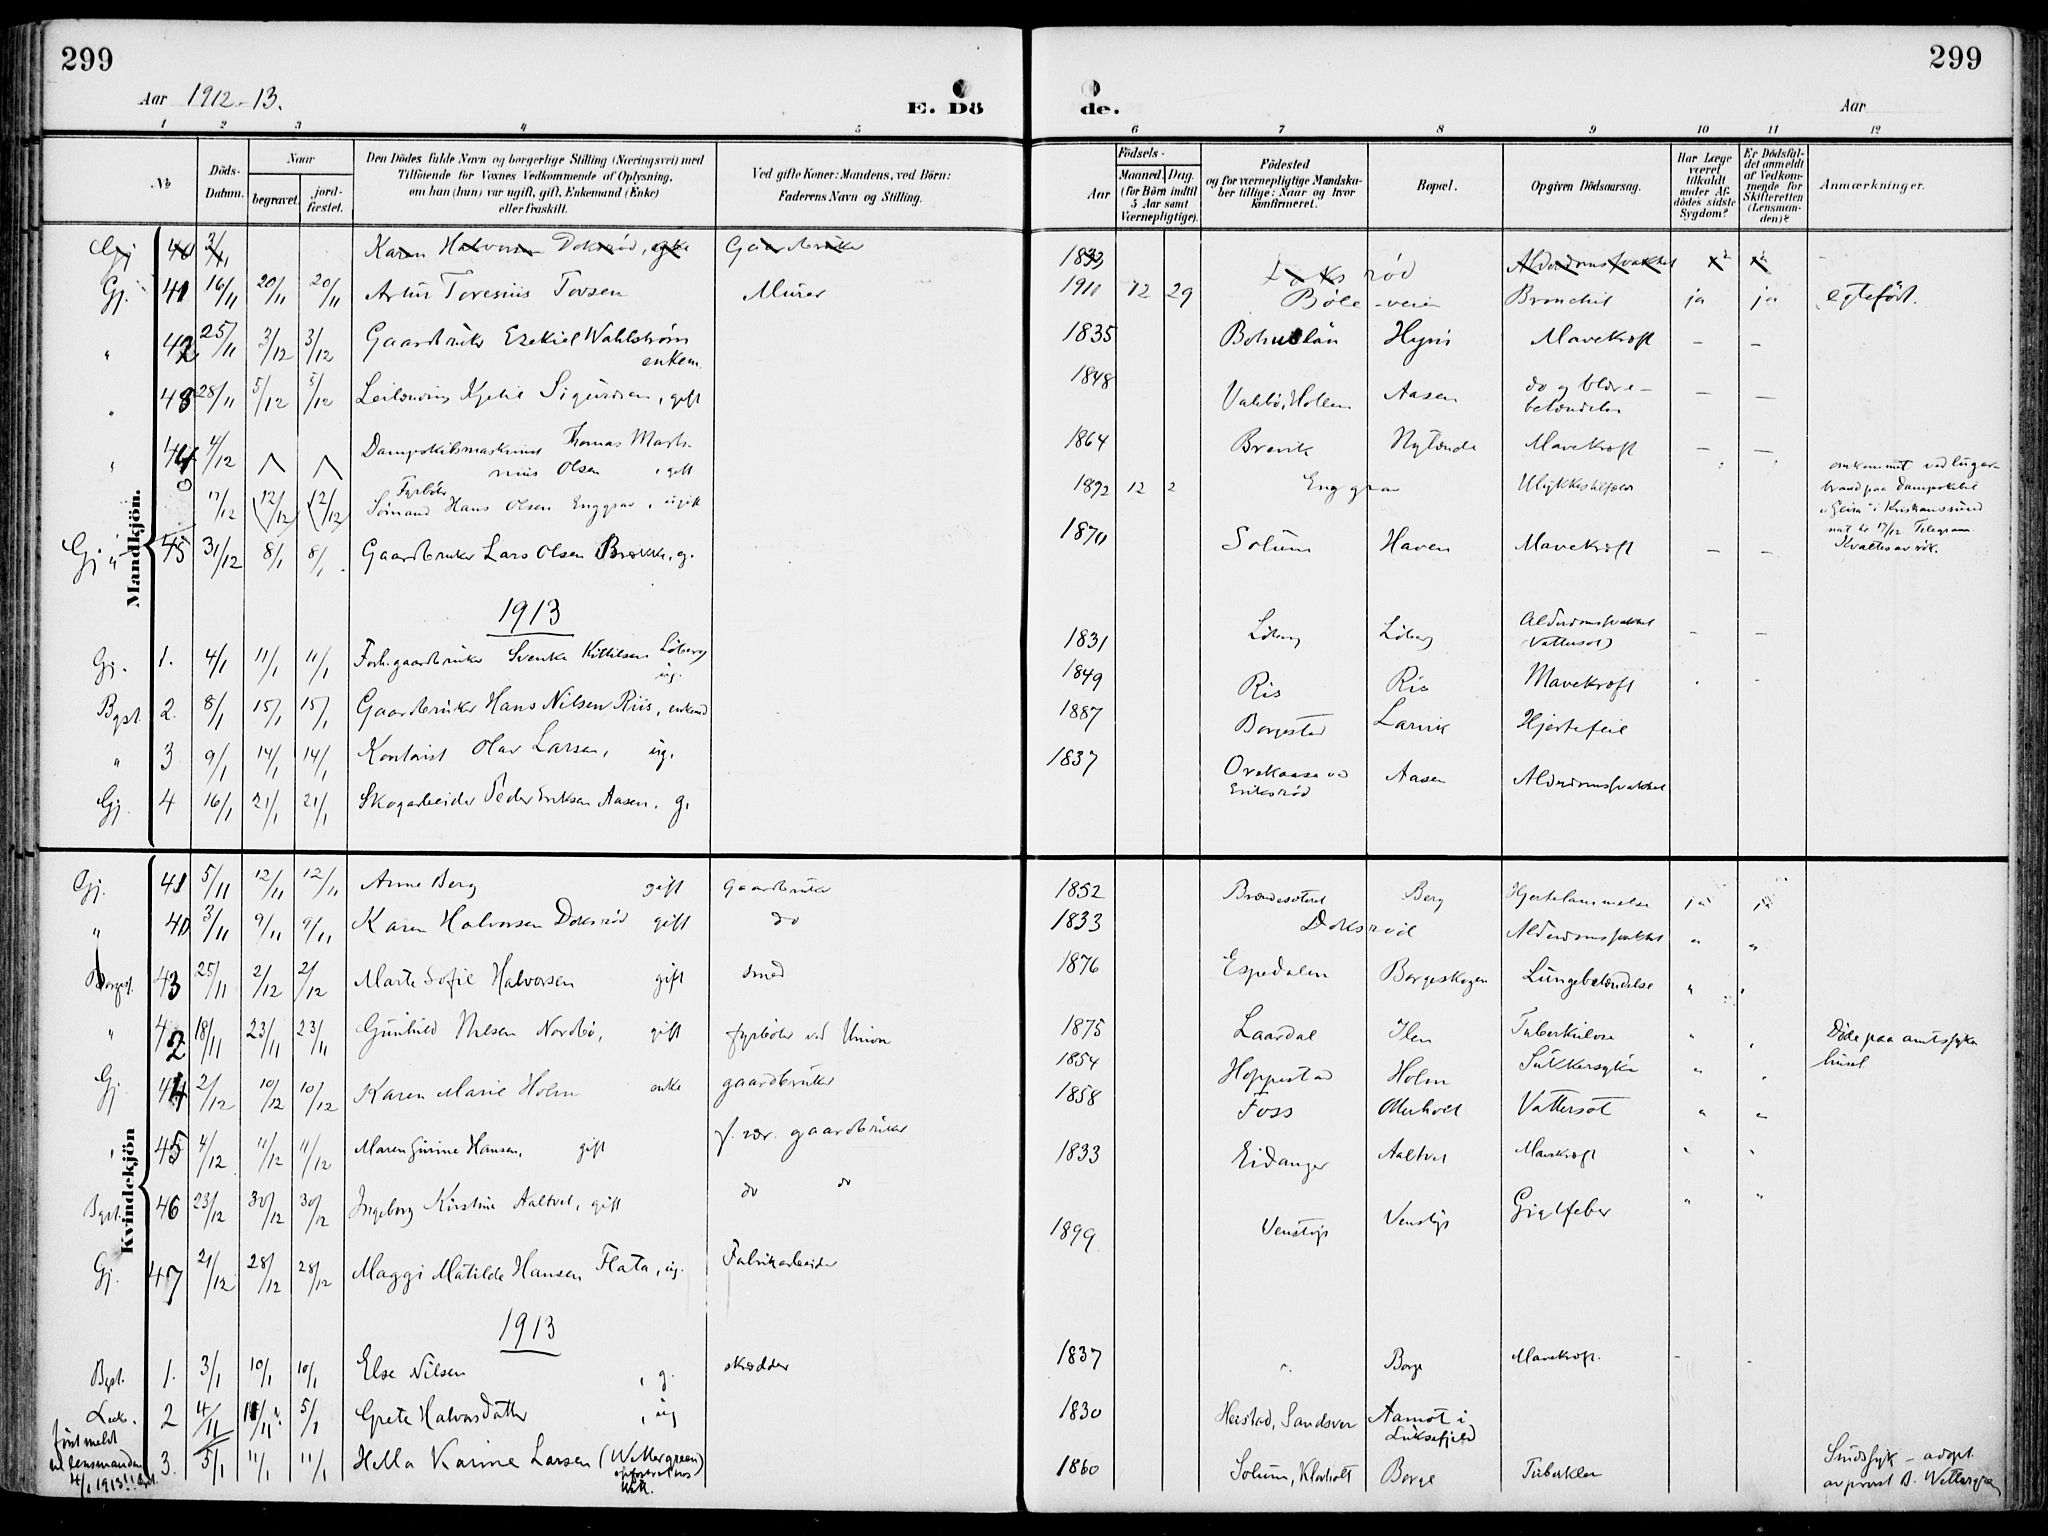 299
299
Aar 1912-13.
E. Dö
de.
Aar
1 2 3 4 5 6 7 8 9 10 11 12
No
Döds-Datum.
Naar
begravet.
jord-fæstet.
Den Dödes fulde Navn og borgerlige Stilling (Næringsvei) med
Tilföiende for Voxnes Vedkommende af Oplysning,
om han (hun) var ugift, gift, Enkemand (Enke)
eller fraskilt.
Ved gifte Koner: Mandens, ved Börn:
Faderens Navn og Stilling.
Födsels-
Aar
Maaned. Dag.
(for Börn indtil
5 Aar samt
Værnepligtige).
Födested
og for værnepligtige Mandska-
ber tillige: Naar og hvor
konfirmeret.
Bopæl.
Opgiven Dödsaarsag.
Har Læge
været
tilkaldt
under Af-
dödes sidste
Sygdom?
Er Dödsfal-
det anmeldt
af Vedkom-
mende for
Skifteretten
(Lensman-
den)?
Anmærkninger.
Mandkjön.
Gj 40 3/11 Karen Halvorsen Doksrød, enke Gaardbruker 1833 Doksrød Alderdomssvakhet
Gj. 41 16/11 20/11 20/11 Artur Toresius Tovsen Murer 1911 12 29 Bøle-veien Bronchit ja ja egtefødt.
" 42 25/11 3/12 3/12 Gaardbruker Ezekiel Wahlstrøm enkem. 1835 Bohuslän Hynis Mavekræft – –
" 43 28/11 5/12 5/12 Leilænding Kjetil Sigurdsen, gift 1848 Valebø, Hollen Aasen do og blære-
betændelse – –
" 44 4/12 Dampskibsmaskinist Thomas Marti-
nius Olsen, gift 1864 Brevik Nylænde Mavekræft – –
17/12 12/12 12/12 Fyrbøter
Sømand Hans Olsen Enggrav, ugift 1892 12 2 Enggrav Ulykkestilfælde omkommet ved lugar-
brand paa Dampskibet
"Geira" i Kristianssund
nat til 17/12 Telegram
Kvaltes av røk.
Gj 45 31/12 8/1 8/1 Gaardbruker Lars Olsen Brække, g. 1870 Solum Haven Mavekræft – –
1913
Gj. 1. 4/1 11/1 11/1 Forh. gaardbruker Svenke Kittilsen Løberg
ug. 1831 Løberg Løberg Alderdomssvakhet
(Vattersot) – –
Bgst. 2. 8/1 15/1 15/1 Gaardbruker Hans Nilsen Riis, enkemd 1849 Ris Ris Mavekræft
" 3 9/1 14/1 14/1 Kontorist Olav Larsen, ug. 1887 Borgestad Larvik Hjertefeil
Gj. 4 16/1 21/1 21/1 Skogarbeider Peder Eriksen Aasen, g. 1837 Ovekaasa ved
Eriksrød Aasen Alderdomssvakhet
Kvindekjön
Gj. 41 5/11 12/11 12/11 Anne Berg gift Gaardbruker 1852 Brændesæteret Berg Hjertelammelse ja ja
" 40 3/11 9/11 9/11 Karen Halvorsen Doksrød gift do 1833 Doksrød Alderdomssvakhet " "
Borgest. 43 25/11 2/12 2/12 Marte Sofie Halvorsen gift smed 1876 Espedalen Borgeskogen Lungebetændelse " "
" 42 18/11 23/11 23/11 Gunhild Nilsen Nordbø, gift fyrbøter ved Union 1875 Laardal Ilen Tuberkulose " " Døde paa amtssyke
huset
Gj. 44 2/12 10/12 10/12 Karen Marie Holm enke gaardbruker 1854 Hoppestad Holm Sukkersyke " "
" 45 4/12 11/12 11/12 Maren Gurine Hansen, gift f. vær. gaardbruker 1858 Foss Oterholt Vattersot " "
Bgst. 46 23/12 30/12 30/12 Ingeborg Kirstine Aaltvet, gift do do 1833 Eidanger Aaltvet Mavekræft " "
Gj. 47 21/12 28/12 28/12 Maggi Matilde Hansen Flata, ug. Fabrikarbeider 1899 Venstøp Venstøp Gigtfeber " "
1913
Bgst. 1. 3/1 10/1 10/1 Else Nilsen, g. skrædder 1837 " Borge Mavekræft. – –
2 4/11 11/11 5/1 Grete Halvorsdatter, ug 1830 Heistad, Sandsver Aamot i
Luksefjeld
først meldt
til lensmanden
4/1 1913!!
3. 5/1 11/1 11/1 Hella Karine Larsen (Wettergreen) 1860 Solum, Klovholt Borge Tuberkler Sindssyk – adopt.
av provst B. Wettergreen